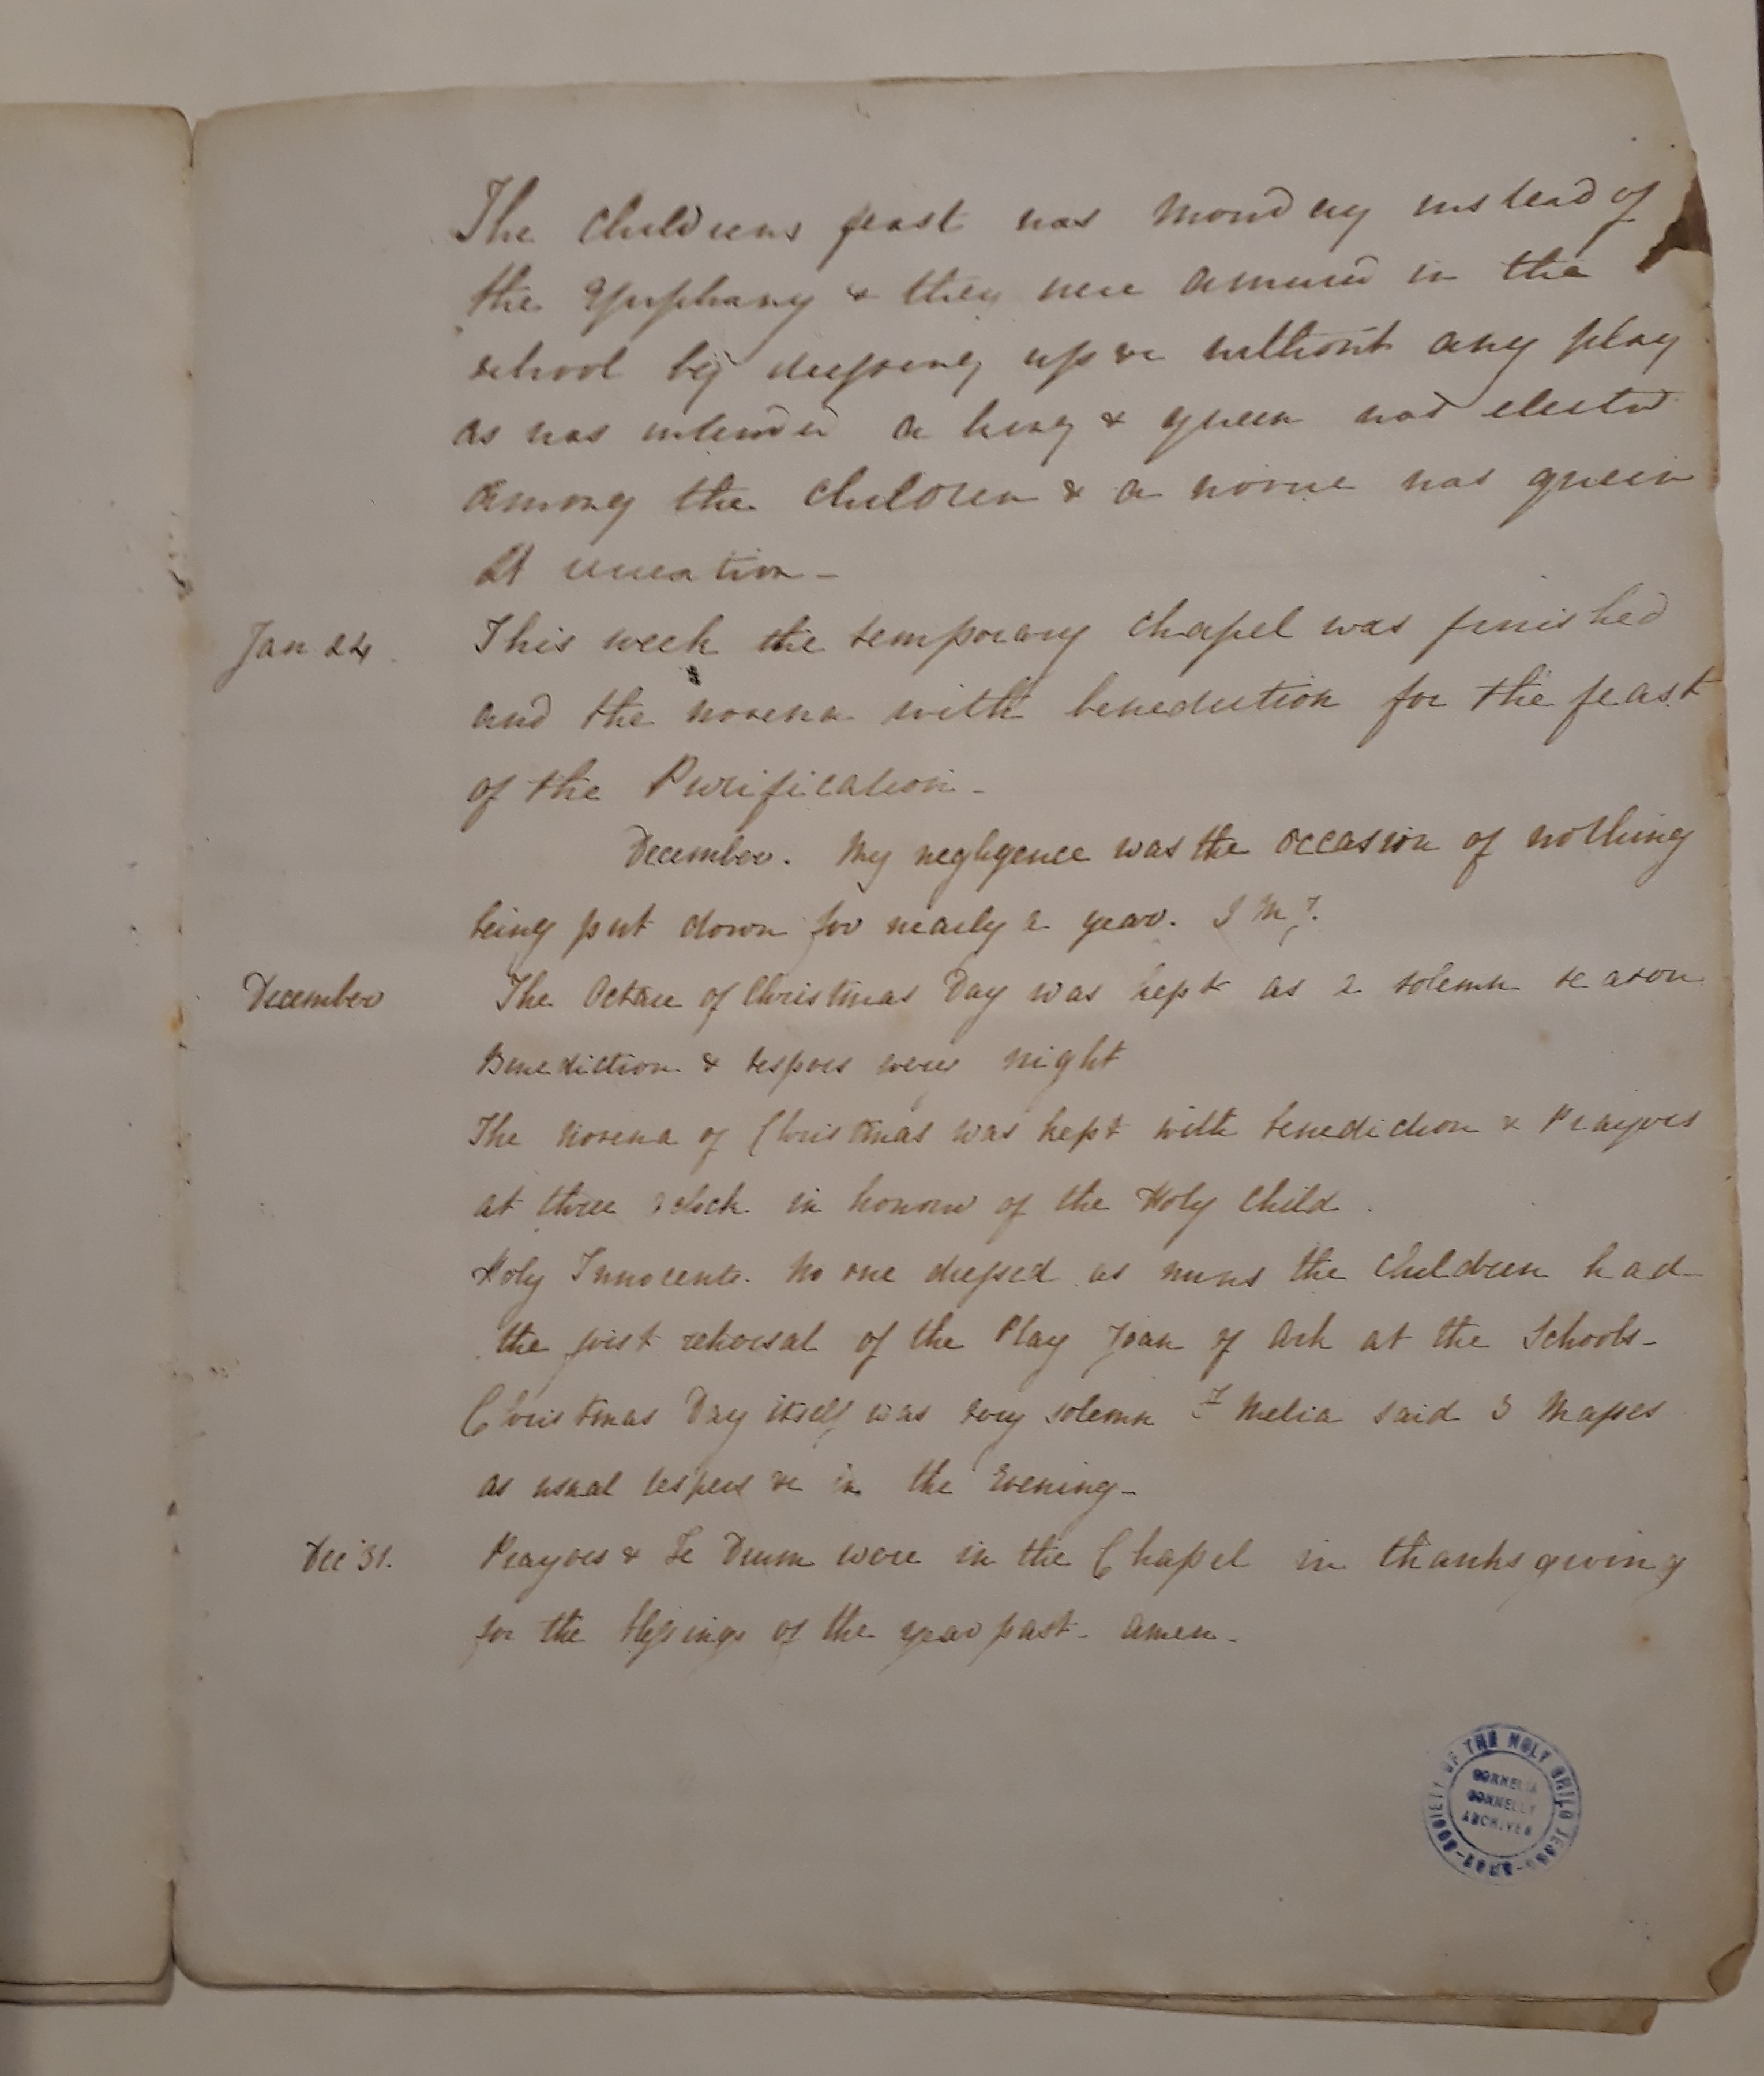 The Childrens feast was Monday instead of
the Epiphany & they were amused in the
school by dressing up &c without any play
as was intended a king & queen was elected
among the Children & a novice was queen
at recreation -
Jan 24 This week the temporary Chapel was finished
and the novena with benediction for the feast
of the Purification -
December. My negligence was the occasion of nothing
being put down for nearly a year. I M J.
December The Octave of Christmas Day was kept as a solemn season
Benediction & vespers every night
The Novena of Christmas was kept with benediction & Prayers
at three oclock in honour of the Holy Child.
Holy Innocents. No one dressed as nuns the Children had
the first rehersal of the Play Joan of Ark at the Schools -
Christmas Day itself was very solemn F Melia said 3 Masses
as usual vespers &c in the Evening -
Dec 31. Prayers & Te Deum were in the Chapel in thanksgiving
for the blessings of the year past - amen -
SOCIETY OF THE HOLY CHILD JESUS
CORNELIA
CONNELLY
ARCHIVES